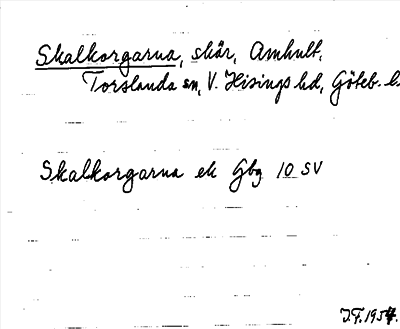 Skalkorgarna, skär, Amhult,
Torslanda sn, V. Hisings hd, Göteb. l.
Skalkorgarna ek Gbg 10 SV
J.F. 1957.